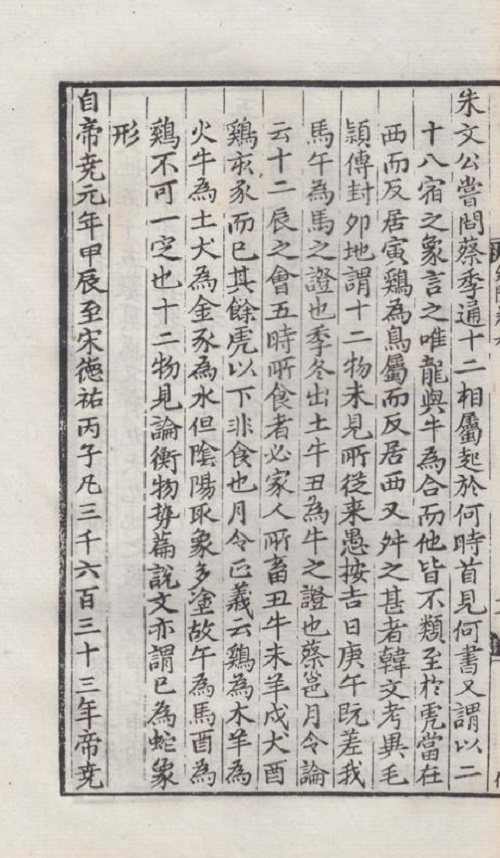 朱文公嘗問蔡季通十二相屬起於何時首見何書又謂以二
十八宿之象言之唯龍與牛為合而他皆不類至於虎當在
西而反居寅鷄為鳥屬而反居西又舛之甚者韓文考異毛
頴傳封夘地謂十二物未見所從来愚按吉日庚午既差我
馬午為馬之證也季冬出土牛丑為牛之證也蔡邕月令論
云十二辰之會五時所食者必家人所畜丑牛未羊戍犬酉
鷄亥豕而已其餘虎以下非食也月令正義云鷄為木羊為
火牛為土犬為金豕為水但陰陽取象多塗故午為馬酉為
鷄不可一定也十二物見論衡物勢篇説文亦謂巳為蛇象
形
自帝尭元年甲辰至宋徳祐丙子凡三千六百三十三年帝尭